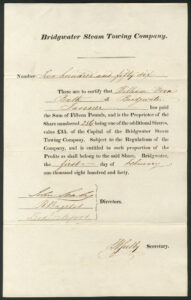 Bridgwater Steam Towing Company.
Number Two hundred and fifty six
These are to certify that William
of Bridgwater
has paid
the Sum of Fifteen Pounds, and is the Proprietor of the
Share numbered 256 being one of the additional Shares,
value £35. of the Capital of the Bridgwater Steam
Towing Company. Subject to the Regulations of the
Company, and is entitled to such proportion of the
Profits as shall belong to the said Share. Bridgwater,
the first day of February
one thousand eight hundred and forty.
John
Directors.
Secretary.